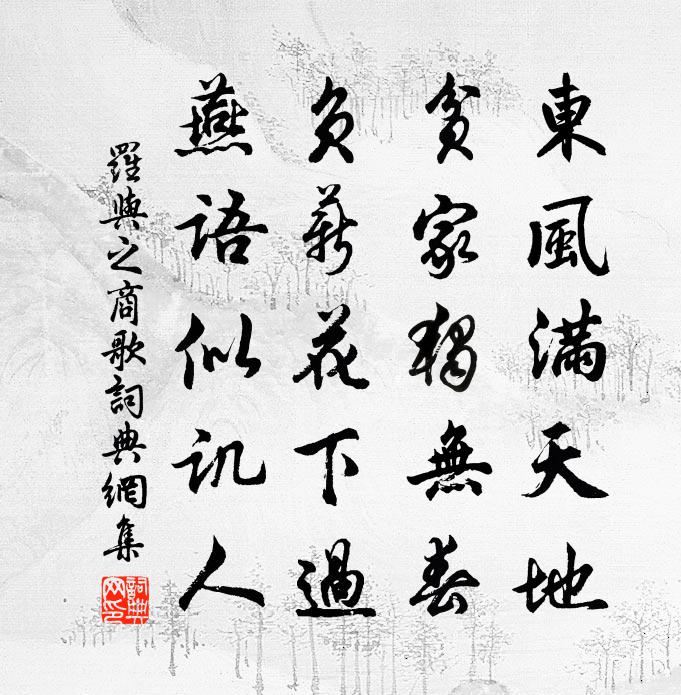 東風滿天地
貧家獨無春
負薪花下過
燕語似譏人
羅與之商歌詞典網集